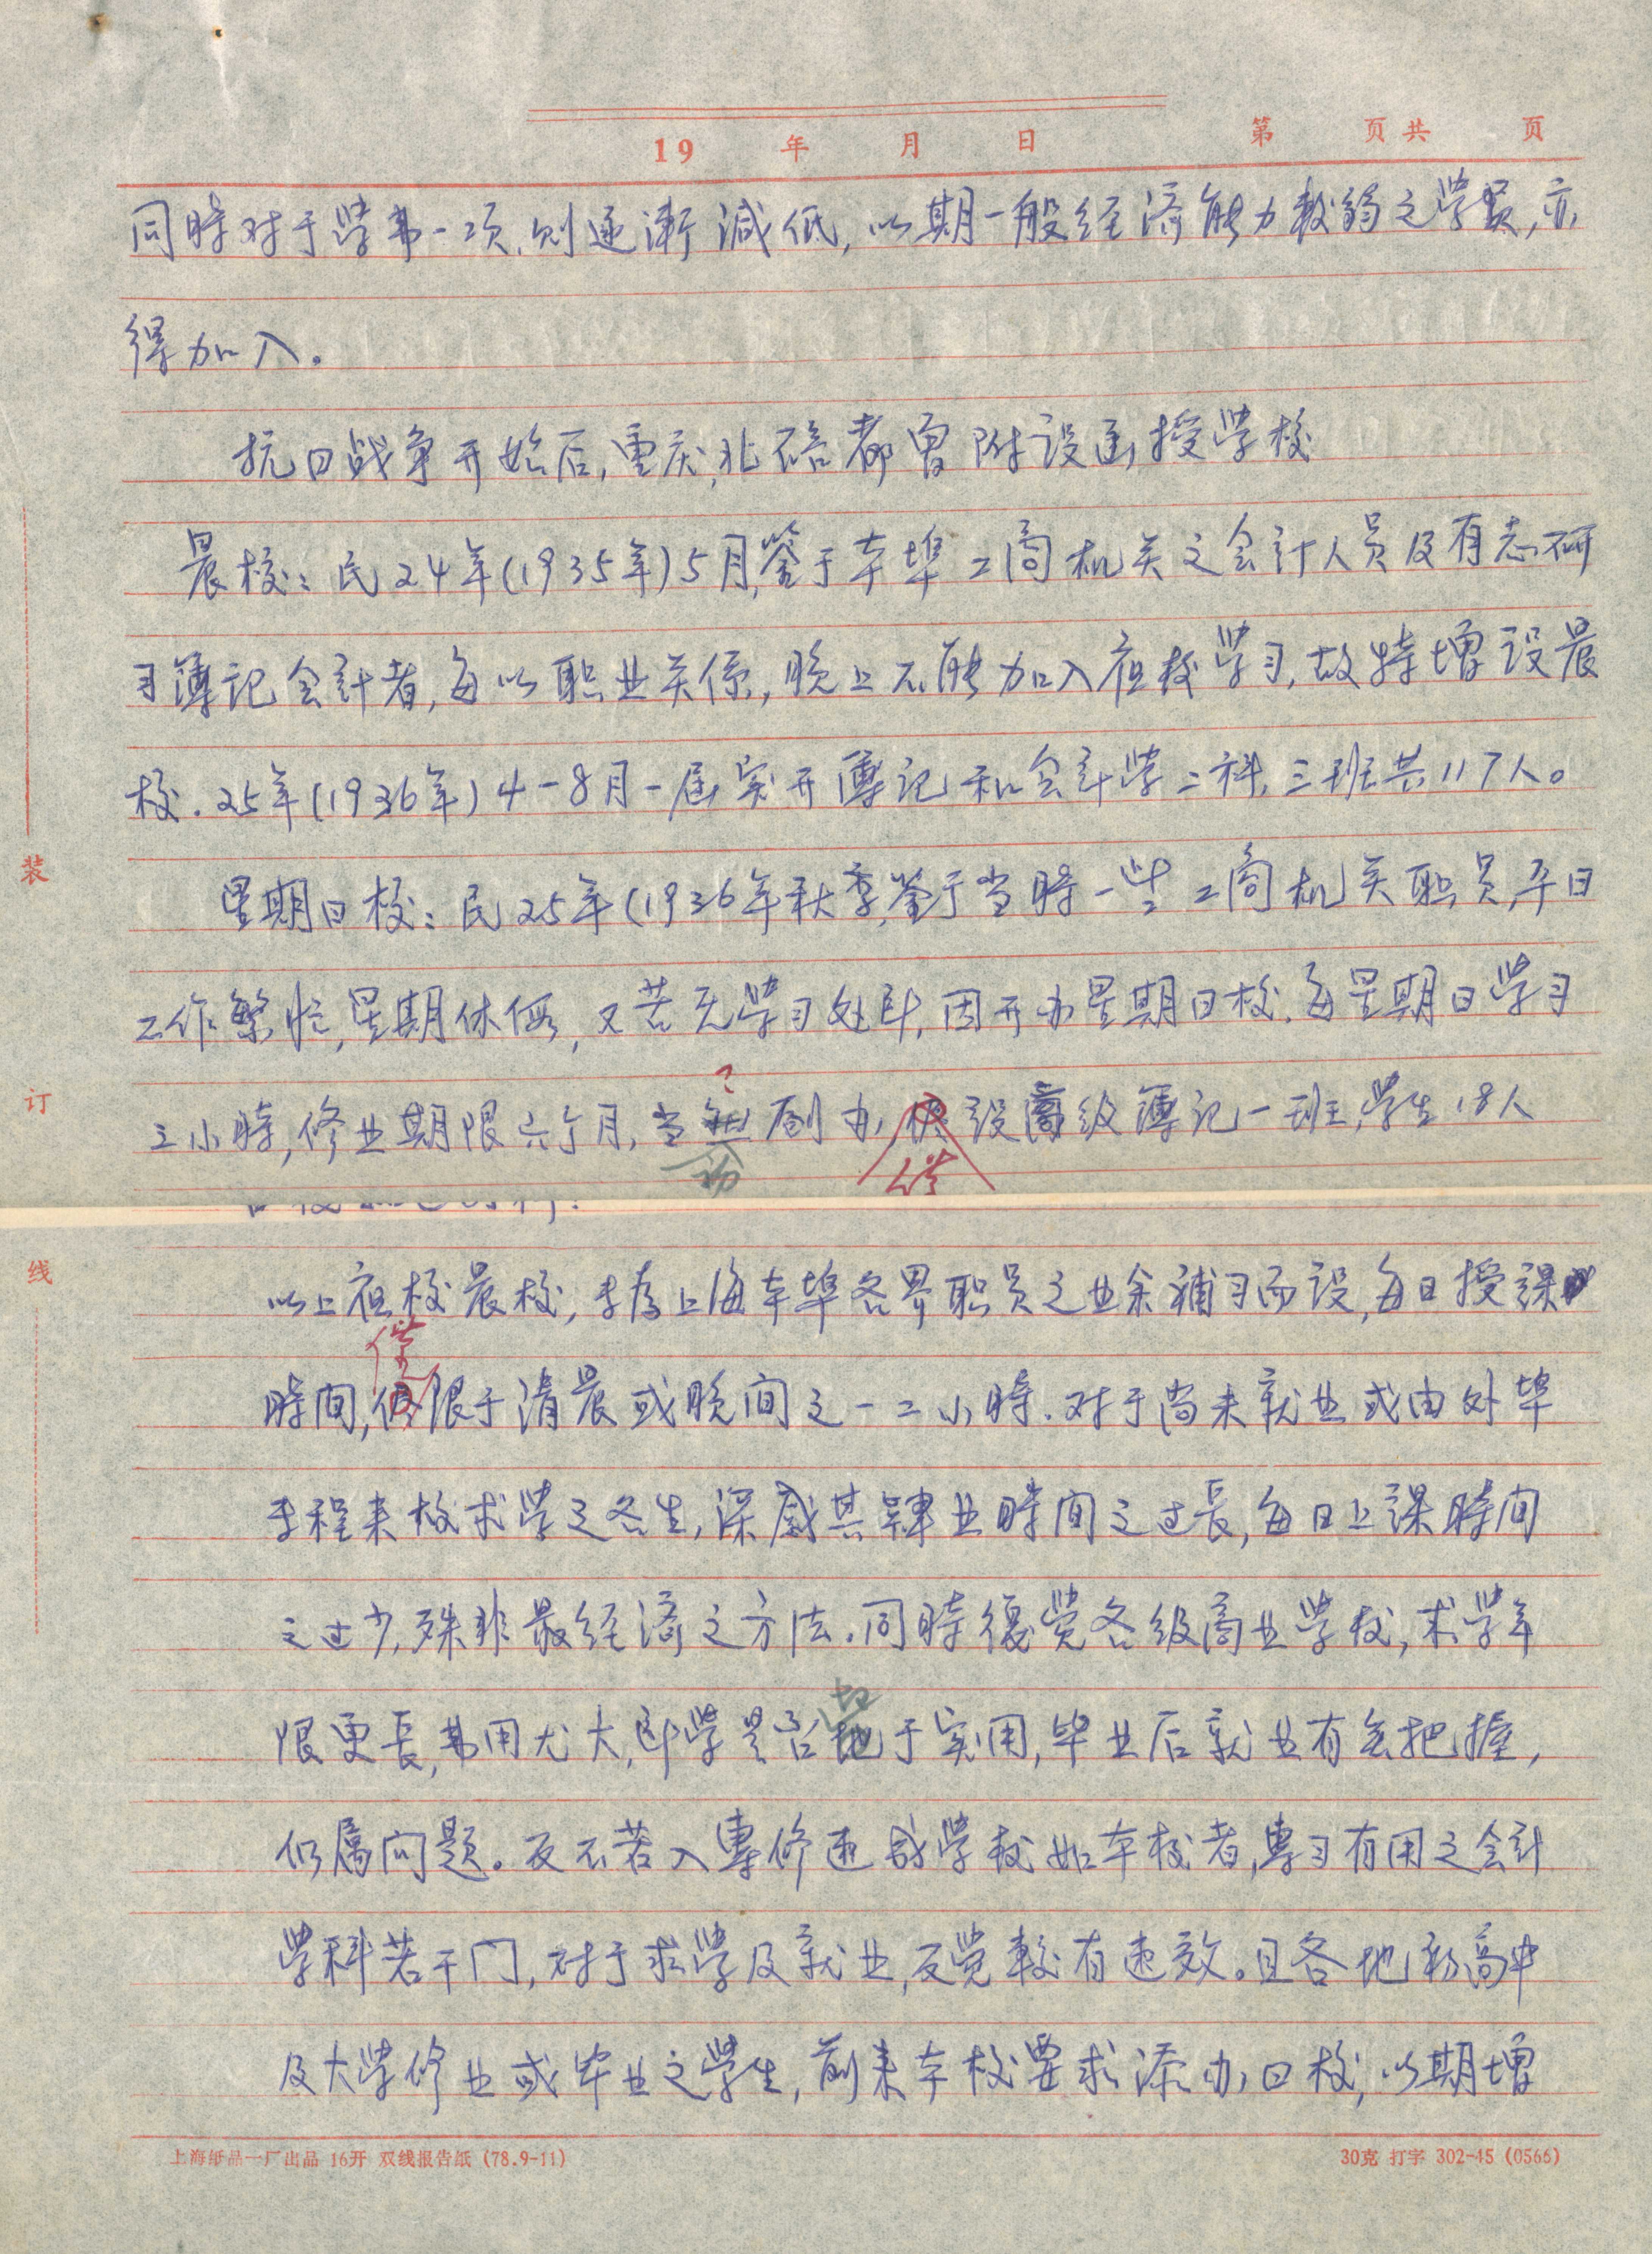 19 年 月 日 第 页共 页
同時对于学费一项,则逐渐減低,以期一般经济能力較弱之学员,亦
得加入。
抗日战争开始后,重庆,北碚都曾附设函授学校
晨校:民24年(1935年)5月,鉴于本埠工商机关之会计人员及有志研
习簿记会計者,每以职业关係,晚上不能加入夜校学习,故特增设晨
校.25年(1936年)4-8月一届实开簿记和会计学二科,三班共117人。
星期日校:民25年(1936年秋季,鉴于当時一些工商机关职员,平日
工作繁忙,星期休假,又苦无学习处所,因开办星期日校.每星期日学习
三小時,修业期限六个月,当無創办,僅设高级簿记一班,学生18人
?
初
仅
以上夜校晨校,专为上海本埠各界职员之业余補习而设,每日授課
仅
時间,僅限于清晨或晚间之一二小時.对于尚未就业或由外埠
专程来校求学之各生,深感其肄业時间之过長,每日上課時间
之过少,殊非最经济之方法.同時復覺各级商业学校,求学年
切
限更長,费用尤大,所学是否地于实用,毕业后就业有無把握,
仍属问题。反不若入專修速成学校如本校者,專习有用之会计
学科若干门,对于求学及就业,反觉較有速效。且各地初高中
及大学修业或毕业之学生,前来本校要求添办日校,以期增
装
订
线
上海纸品一厂出品 16开 双线报告纸 (78.9-11)
30克 打字 302-45 (0566)